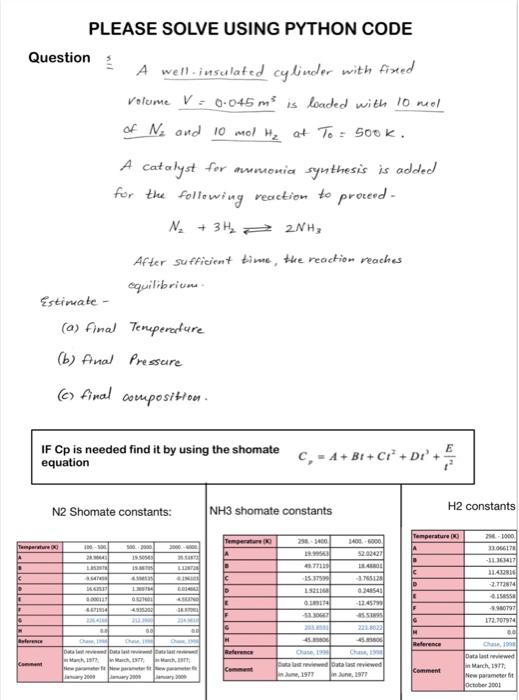 PLEASE SOLVE USING PYTHON CODE
Question
A well-insulated cylinder with fixed
Volume V = 0.045 m³ is loaded with 10 mol
of N₂ and 10 mol H₂ at T₀ = 500 K.
A catalyst for ammonia synthesis is added
for the following reaction to proceed -
N₂ + 3H₂ ⇌ 2NH₃
After sufficient time, the reaction reaches
equilibrium.
Estimate -
(a) final Temperature
(b) final Pressure
(c) final composition.
IF Cp is needed find it by using the shomate
equation
C_p = A + Bt + Ct² + Dt³ + E/t²
N2 Shomate constants:
NH3 shomate constants
H2 constants
Temperature (K) 100. - 500. 500. - 2000. 2000. - 6000.
A 28.98641 19.50583 35.51872
B 1.853978 19.88705 1.128728
C
D 16.63537
E 0.000117 0.527601
F -8.671914 -4.935202
G 226.4168 212.3900
H 0.0 0.0 0.0
Reference Chase, 1998 Chase, 1998 Chase, 1998
Comment Data last reviewed in March, 1977; New parameter fit January 2009 Data last reviewed in March, 1977; New parameter fit January 2009 Data last reviewed in March, 1977; New parameter fit January 2009
Temperature (K) 298. - 1400. 1400. - 6000.
A 19.99563 52.02427
B 49.77119 18.48801
C -15.37599 -3.765128
D 1.921168 0.248541
E 0.189174 -12.45799
F -53.30667 -85.53895
G 203.8591 223.8022
H -45.89806 -45.89806
Reference Chase, 1998 Chase, 1998
Comment Data last reviewed in June, 1977 Data last reviewed in June, 1977
Temperature (K) 298. - 1000.
A 33.066178
B -11.363417
C 11.432816
D -2.772874
E -0.158558
F -9.980797
G 172.707974
H 0.0
Reference Chase, 1998
Comment Data last reviewed in March, 1977; New parameter fit October 2001